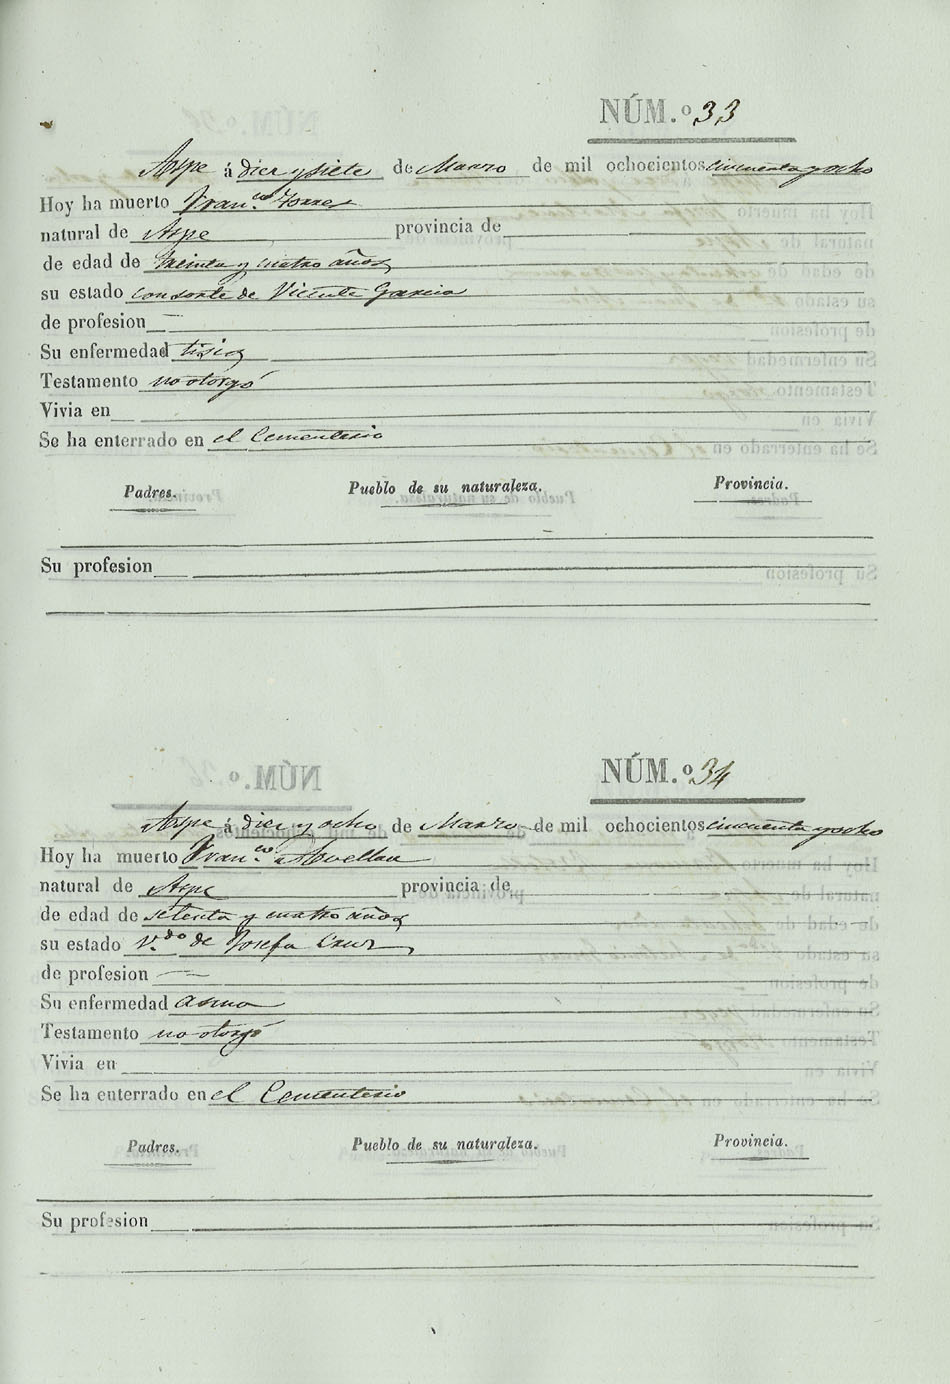 NÚM.º 33
Aspe á diez y siete de Marzo de mil ochocientos cincuenta y ocho
Hoy ha muerto Fran.ca Torres
natural de Aspe provincia de
de edad de treinta y cuatro años
su estado consorte de Vicente Garcia
de profesion —
Su enfermedad tisis
Testamento no otorgó
Vivia en
Se ha enterrado en el Cementerio
Padres. Pueblo de su naturaleza. Provincia.
Su profesion
NÚM.º 34
Aspe á diez y ocho de Marzo de mil ochocientos cincuenta y ocho
Hoy ha muerto Fran.co Avellan
natural de Aspe provincia de
de edad de setenta y cuatro años
su estado V.do de Josefa Cruz
de profesion —
Su enfermedad asma
Testamento no otorgó
Vivia en
Se ha enterrado en el Cementerio
Padres. Pueblo de su naturaleza. Provincia.
Su profesion